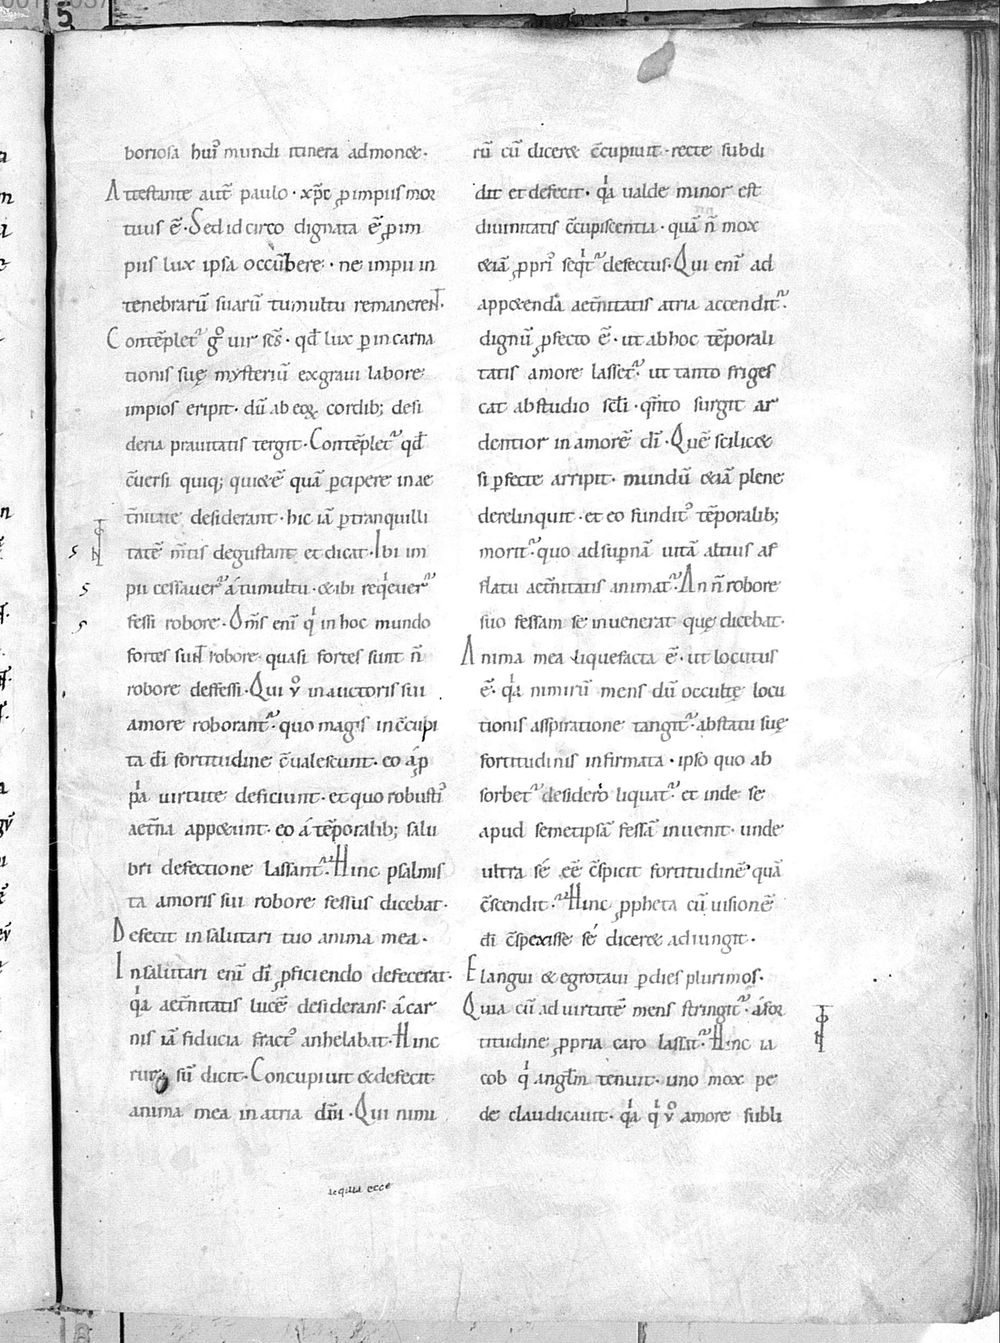 boriosa hui᷒ mundi itinera admonet·
Attestante aut̄ paulo· xp̄c ꝓ impiis mor
tuus ē· Sed id circo dignata ē ꝓ im
piis lux ipsa occūbere· ne impii in
tenebrarū suarū tumultu remanerent·
Contēplet᷑ gͦ uir scs̄· qd̄ lux ꝑ incarna
tionis suę mysteriū ex graui labore
impios eripit· dū ab eoꝝ cordib; desi
deria prauitatis tergit· Contēplet᷑ qd̄
c̄uersi quiq; quietē quā ꝑcipere in ae
t̄nitate desiderant· hic iā ꝑ tranquilli
tatē m̄tis degustant et dicat· Ibi im
pii cessauer᷑ á tumultu· & ibi reqͥeuer᷑
fessi robore· Om̄s eni̅ qͥ in hoc mundo
fortes sunt robore quasi fortes sunt n̄
robore deffessi· Qui ꝟͦ in auctoris sui
amore roborant᷑· quo magis in c̄cupi
ta dī fortitudine c̄ualescunt· eo á ꝓ
pͥa uirtute deficiunt· et quo robusti᷒
aet̄na appetunt· eo á tēporalib; salu
bri defectione lassant᷑· Hinc psalmis
ta amoris sui robore fessus dicebat·
Defecit in salutari tuo anima mea·
In salutari eni̅ dī ꝓficiendo defecerat·
qͥa aet̄nitatis lucē desiderans· á car
nis iā fiducia fract᷒ anhelabat· Hinc
rursū dicit· Concupiuit & defecit
anima mea in atria dn̄i· Qui nimi
rū cū diceret c̄cupiuit· recte subdi
dit et defecit· qͥa ualde minor est
diuinitatis c̄cupiscentia· quā n̄ mox
&iā ꝓpri᷒ seqͥt᷑ defectus· Qui eni̅ ad
appetendā aet̄nitatis atria accendit᷑·
dignū ꝓfecto ē· ut ab hoc tēporali
tatis amore lasset᷑· ut tanto friges
cat ab studio scl̄i· qn̄to surgit ar
dentior in amorē dī· Quē scilicet
si ꝑfecte arripit· mundū &iā plene
derelinquit· et eo fundit᷒ tēporalib;
morit᷑· quo ad suꝑnā uitā altius af
flatu aet̄nitatis animat᷑· An n̄ robore
suo fessam se inuenerat quę dicebat·
Anima mea liquefacta ē· ut locutus
ē· qͥa nimirū mens dū occultę locu
tionis asspiratione tangit᷑· ab statu suę
fortitudinis infirmata· ipso quo ab
sorbet᷑ desiderͦ liquat᷑· et inde se
apud semetipsā fessā inuenit· unde
ultra sé eē c̄spicit fortitudinē· quā
c̄scendit᷑· Hinc ꝓpheta cū uisionē
dī c̄spexisse sé diceret adiungit·
Elangui & egrotaui ꝑ dies plurimos·
Quia cū ad uirtutē mens stringit᷑· á for
titudine ꝓpria caro lassat᷑· Hinc ia
cob qͥ angl̄m tenuit· uno mox pe
de claudicauit· qͥa qͥ ꝟͦ amore subli